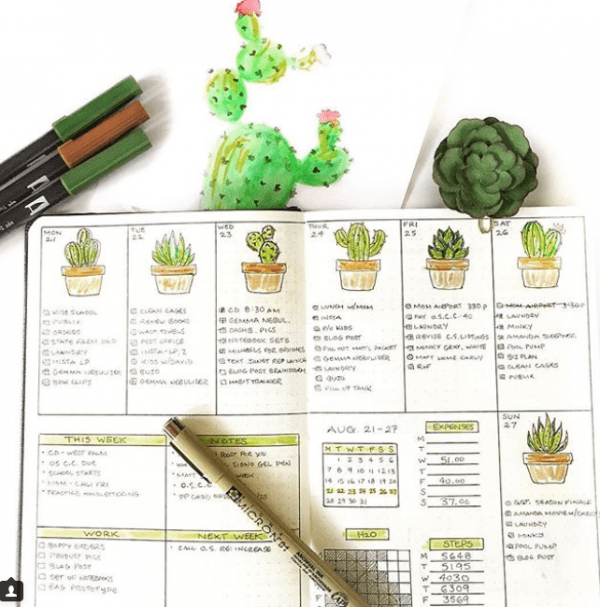 MON
21
KIDS SCHOOL
PUBLIX
ORDERS
STATE FARM
LAUNDRY
INSTA LP
GEMMA NEBULIZER
TUE
22
CLEAN CAGES
RENEW BOOKS
POST OFFICE
INSTA LP, 2
KIDS W/DAVID
BUJO
GEMMA NEBULIZER
WED
23
CD 8:30 AM
GEMMA NEBUL.
PICS
NOTEBOOK SETS
BLOG POST BRAINSTORM
HABIT TRACKER
THUR
24
LUNCH W/MOM
INSTA
P/U KIDS
BLOG POST
GEMMA NEBULIZER
LAUNDRY
BUJO
FILL UP TANK
FRI
25
MOM AIRPORT 330 P
PAY O.S.C.C. 40
LAUNDRY
REVISE C.S. LISTINGS
MONKEY GRAY, WHITE
MATT HOME EARLY
SAT
26
MOM AIRPORT 3:30 P
LAUNDRY
MINKY
AMANDA SLEEPOVER
POOL PUMP
BIZ PLAN
CLEAN CAGES
PUBLIX
THIS WEEK
OS C.C. DUE
SCHOOL STARTS
MOM - CALI FRI
PRACTICE HANDLETTERING
NOTES
BOOT FOR YOU
SIGNO GEL PEN
WEEK
O.S.C.C.
WORK
BUPPY ORDERS
PRODUCT PICS
BLOG POST
SET UP NOTEBOOKS
BAG PROTOTYPE
NEXT WEEK
CALL O.S. RE: INCREASE
MICRON
AUG. 21-27
M T W T F S S
1 2 3 4 5 6
7 8 9 10 11 12 13
14 15 16 17 18 19 20
21 22 23 24 25 26 27
28 29 30 31
H2O
EXPENSES
M
T
W 51.00
T
F 40.00
S
S 37.06
STEPS
M 5648
T 5195
W 4030
T 6309
F 3569
SUN
27
G.O.T. SEASON FINALE
LAUNDRY
MINKS
POOL PUMP
BLOG POST